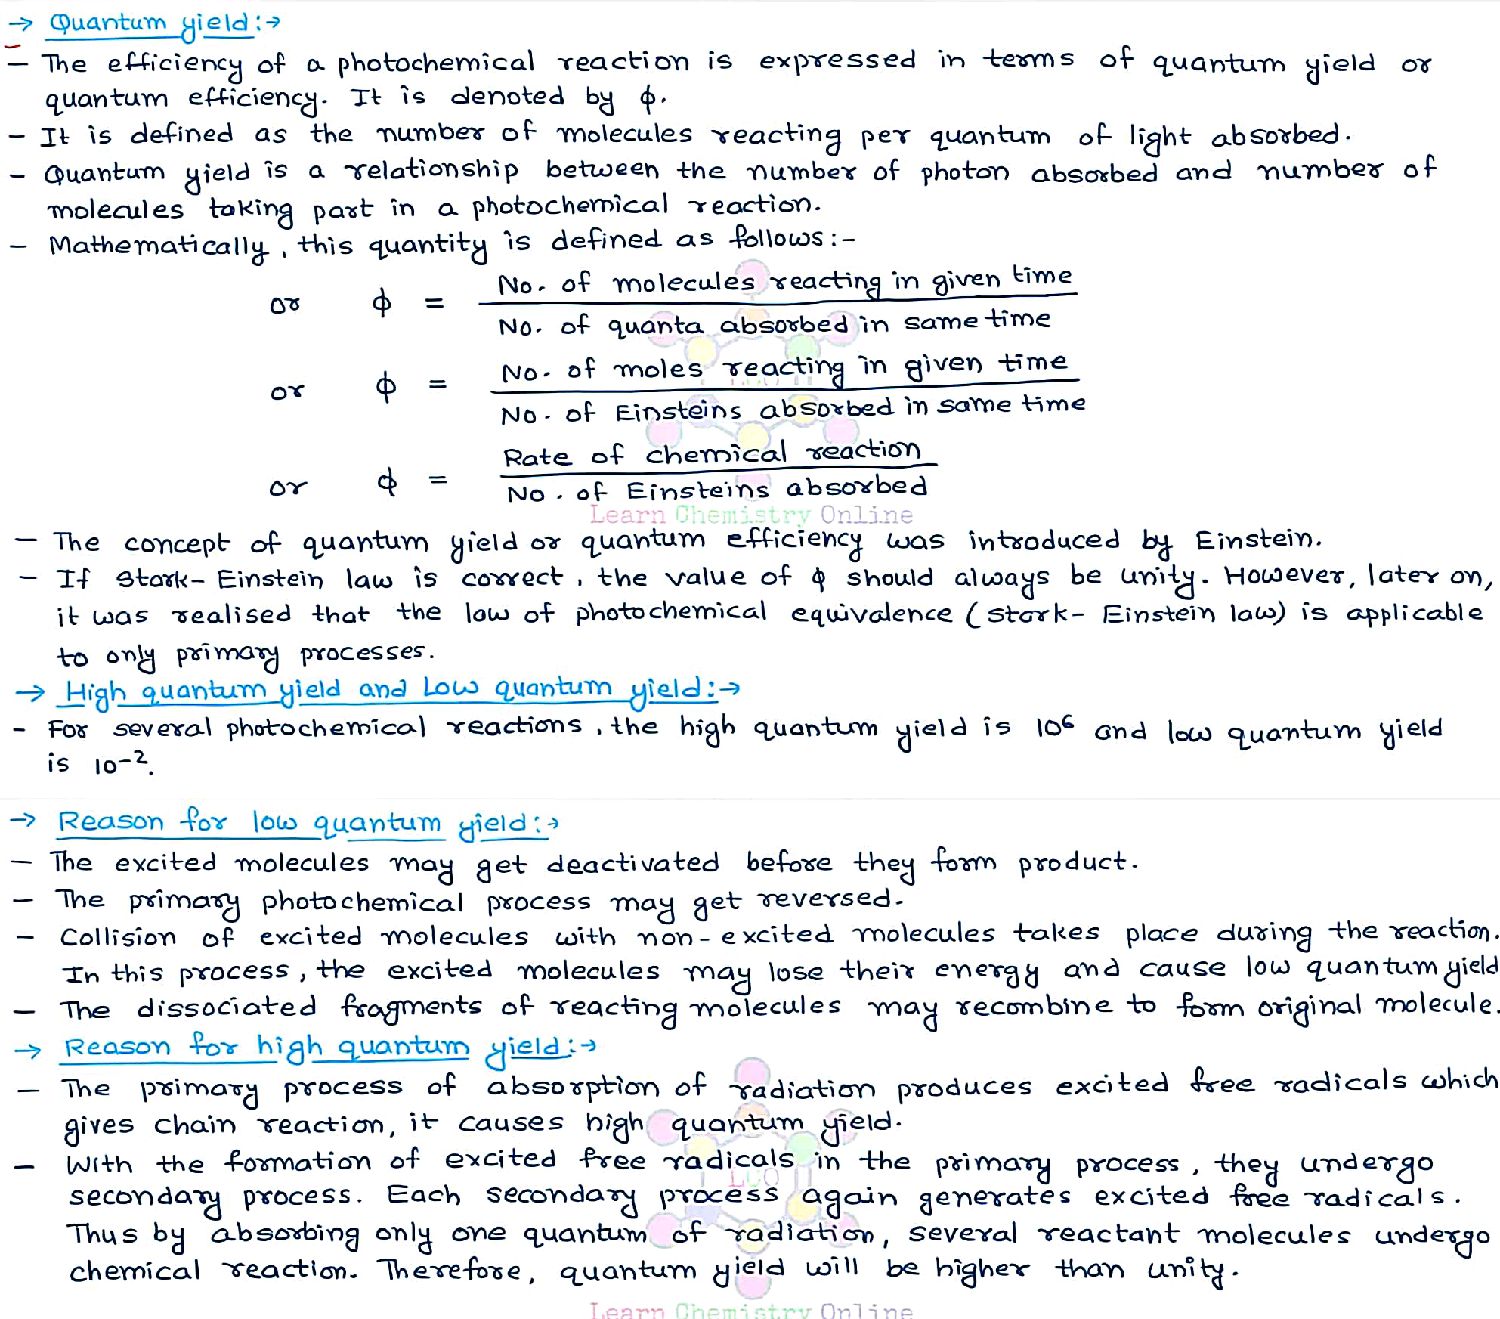 → Quantum yield:→
– The efficiency of a photochemical reaction is expressed in terms of quantum yield or
quantum efficiency. It is denoted by ϕ.
– It is defined as the number of molecules reacting per quantum of light absorbed.
– Quantum yield is a relationship between the number of photon absorbed and number of
molecules taking part in a photochemical reaction.
– Mathematically, this quantity is defined as follows:-
or ϕ = No. of molecules reacting in given time
No. of quanta absorbed in same time
or ϕ = No. of moles reacting in given time
No. of Einsteins absorbed in same time
or ϕ = Rate of chemical reaction
No. of Einsteins absorbed
Learn Chemistry Online
– The concept of quantum yield or quantum efficiency was introduced by Einstein.
– If Stark-Einstein law is correct, the value of ϕ should always be unity. However, later on,
it was realised that the law of photochemical equivalence (Stark-Einstein law) is applicable
to only primary processes.
→ High quantum yield and Low quantum yield:→
– For several photochemical reactions, the high quantum yield is 10⁶ and low quantum yield
is 10⁻².
→ Reason for low quantum yield:→
– The excited molecules may get deactivated before they form product.
– The primary photochemical process may get reversed.
– Collision of excited molecules with non-excited molecules takes place during the reaction.
In this process, the excited molecules may lose their energy and cause low quantum yield
– The dissociated fragments of reacting molecules may recombine to form original molecule.
→ Reason for high quantum yield:→
– The primary process of absorption of radiation produces excited free radicals which
gives chain reaction, it causes high quantum yield.
– With the formation of excited free radicals in the primary process, they undergo
LCO
secondary process. Each secondary process again generates excited free radicals.
Thus by absorbing only one quantum of radiation, several reactant molecules undergo
chemical reaction. Therefore, quantum yield will be higher than unity.
Learn Chemistry Online